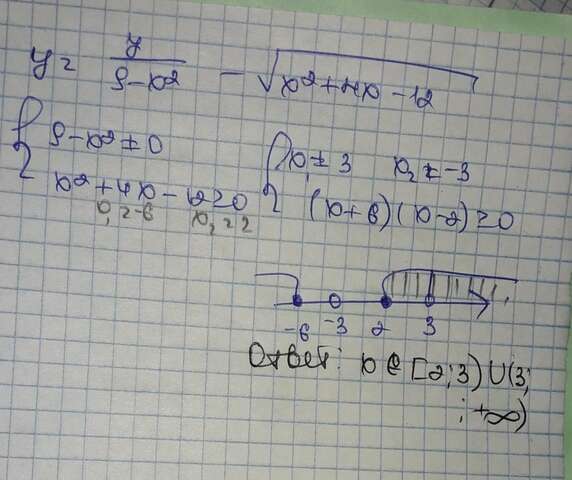 y = y / 9-x2 - √x2+4x-12
{ 9-x2≠0
x2+4x-12≥0
x1=-6 x2=2
{ x1≠3 x2≠-3
(x+6)(x-2)≥0
-6 -3 2 3
Ответ: x ∈ [2;3) ∪ (3;
; +∞)